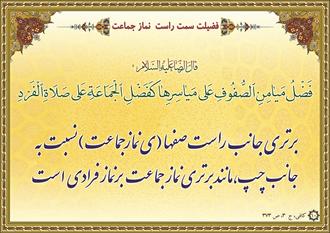 فضیلت سمت راست نماز جماعت
قال الرضا علیه السلام:
فَضْلُ مَیَامِنِ الصُّفُوفِ عَلَی مَیَاسِرِهَا كَفَضْلِ الْجَمَاعَةِ عَلَی صَلَاةِ الْفَرْدِ
برتری جانب راست صفها (ی نماز جماعت) نسبت به
جانب چپ، مانند برتری نماز جماعت بر نماز فرادی است
کافی، ج ۳، ص ۳۷۳